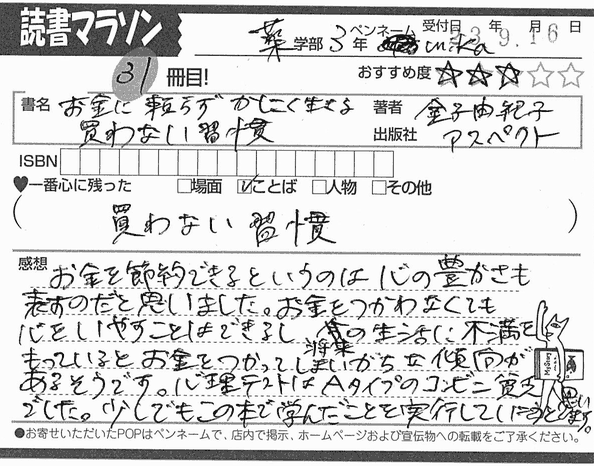 読書マラソン
薬学部 3年 ペンネーム mika 受付日 23年9.月16日
31冊目!
おすすめ度 ★★★☆☆
書名 お金に頼らず かしこく生きる
買わない習慣
著者 金子由紀子
出版社 アスペクト
ISBN
♥一番心に残った □場面 ☑ことば □人物 □その他
(買わない習慣)
感想 お金を節約できるというのは 心の豊かさも
表すのだと思いました。お金をつかわなくても
心をいやすことはできるし、今の生活に不満を
もっていると お金をつかってしまいがちな傾向が
あるそうです。心理テストはAタイプのコンビニ貧乏
でした。少しでもこの本で学んだことを実行していこうと思います。
将来
●お寄せいただいたPOPはペンネームで、店内で掲示、ホームページおよび宣伝物への転載をご了承ください。